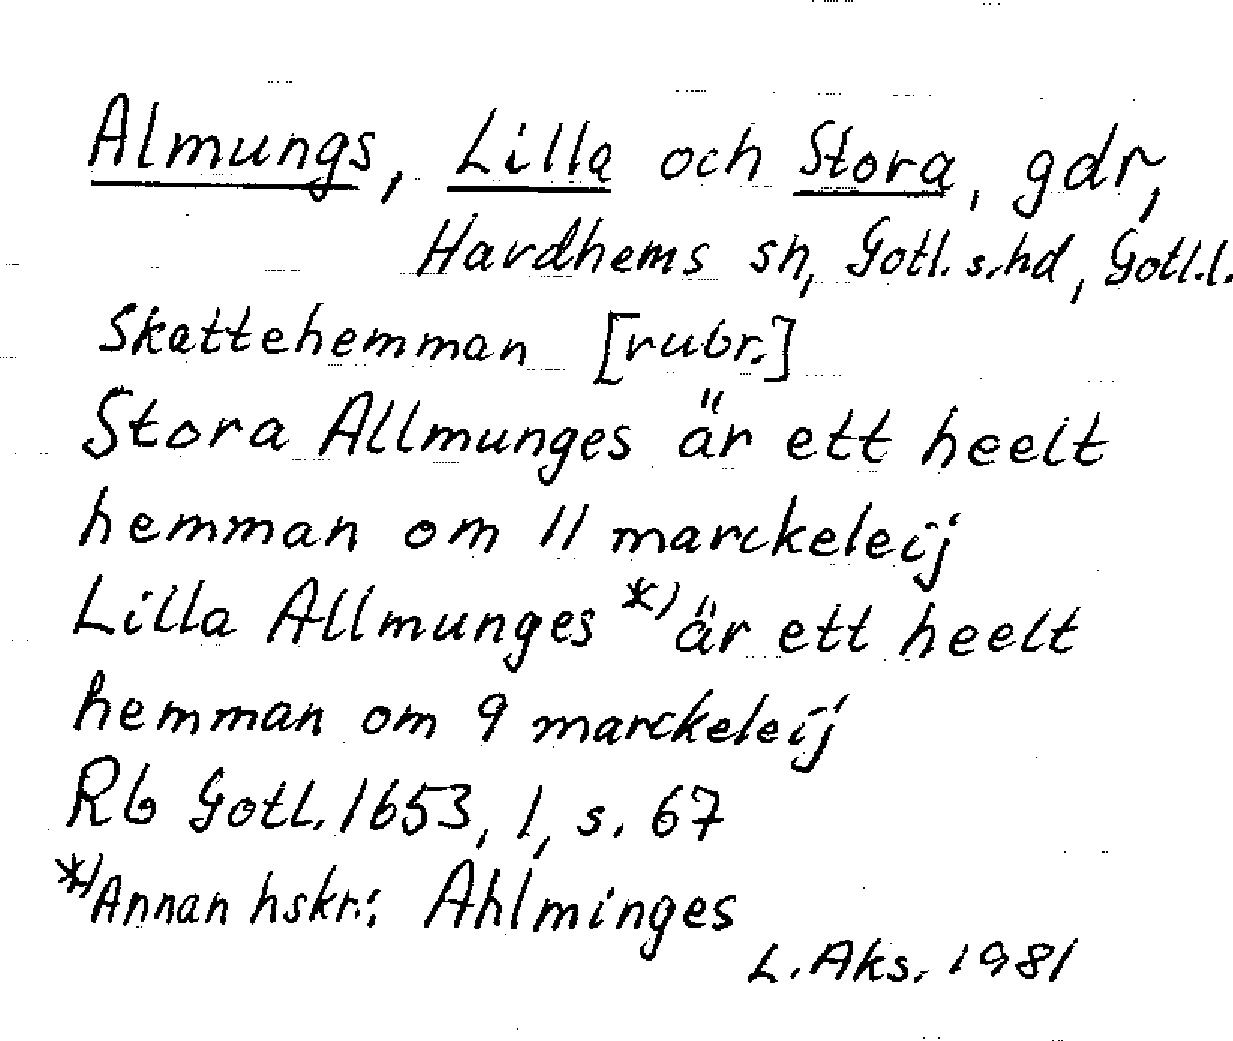 Almungs, Lilla och Stora, gdr,
Hardhems sn, Gotl. s. hd, Gotl. l.
Skattehemman [rubr.]
Stora Allmunges är ett heelt
hemman om 11 marckeleij
Lilla Allmunges *) är ett heelt
hemman om 9 marckeleij
Rb Gotl. 1653, 1, s. 67
*) Annan hskr.: Ahlminges
L. Aks. 1981